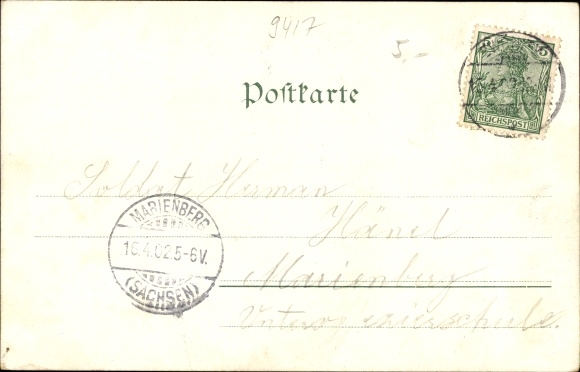 9417
5.-
5 5
REICHSPOST
Postkarte
Soldat Herman
Hänel
Marienberg
Unteroffizierschule.
MARIENBERG
16.4.02.5-6V.
(SACHSEN)